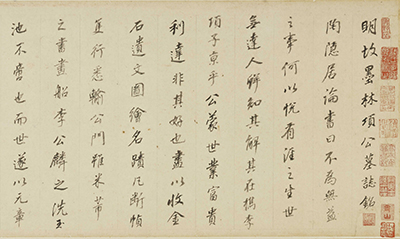 明故墨林項公墓誌銘
陶隱居論書曰不為無益
之事何以悅有涯之生世
無達人解知其解其在檇李
項子京乎公蒙世業富貴
利達非其好也盡以收金
石遺文圖繪名蹟凡斷幀
隻行悉輸公門雖米芾
之書畫船李公麟之洗玉
池不啻也而世遂以元章